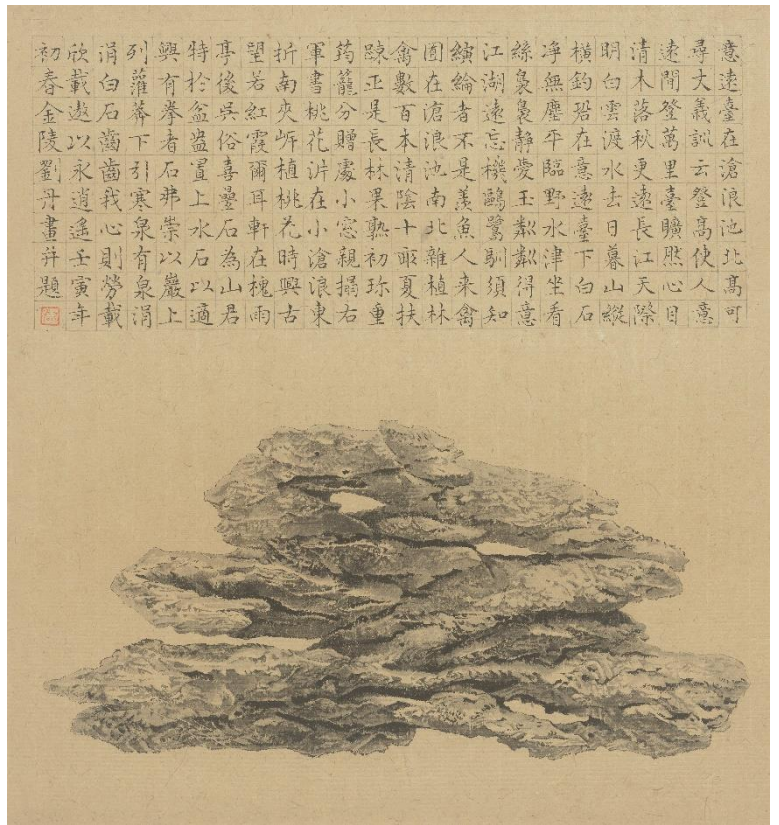 意遠臺在滄浪池北高可
尋大義訓云登高使人意
遠閒登萬里臺曠然心目
清木落秋更遠長江天際
明白雲渡水去日暮山縱
橫釣䂬在意遠臺下白石
淨無塵平臨野水津坐看
絲裊裊靜愛玉粼粼得意
江湖遠忘機鷗鷺馴須知
縯綸者不是羨魚人来禽
囿在滄浪池南北雜植林
禽數百本清陰十畝夏扶
踈正是長林果熟初珎重
筠籠分贈處小窓親搨右
軍書桃花沜在小滄浪東
折南夾岸植桃花時興古
望若紅霞爾耳軒在槐雨
亭後吳俗喜疊石為山君
特於盆盎置上水石以適
興有拳者石弗崇以巖上
列灌莽下引寒泉有泉涓
涓白石齒齒我心則勞載
欣載遨以永逍遙壬寅年
初春金陵劉丹畫并題